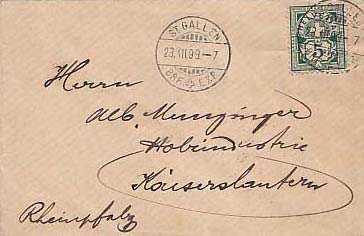 ST. GALLEN
23.XII.99.–7
BRF. EXP.
HELVETIA
5
Herrn
Alb. Munzinger
Holzindustrie
Kaiserslautern
Rheinpfalz